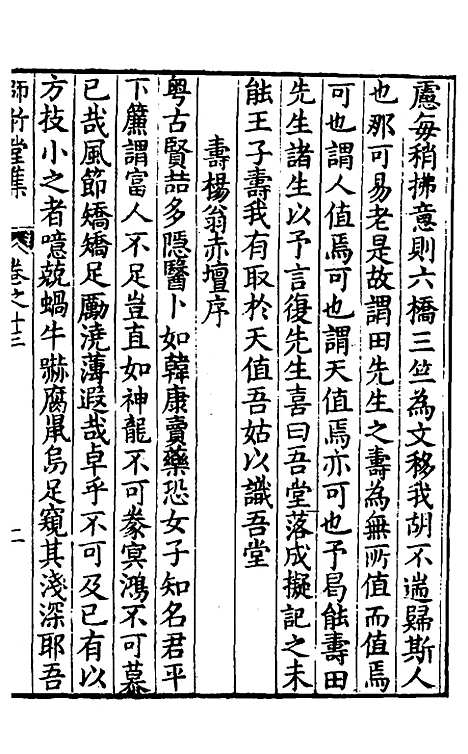 慮每稍拂意則六橋三竺為文移我胡不遄歸斯人
也那可易老是故謂田先生之壽為無所值而值焉
可也謂人值焉可也謂天值焉亦可也予曷能壽田
先生諸生以予言復先生喜曰吾堂落成擬記之未
能王子壽我有取於天值吾姑以識吾堂
壽楊翁赤壇序
粤古賢喆多隱醫卜如韓康賣藥恐女子知名君平
下簾謂富人不足豈直如神龍不可豢冥鴻不可慕
已哉風節矯矯足勵澆薄遐哉卓乎不可及已有以
方技小之者噫兢蝸牛嚇腐鼠烏足窺其淺深耶吾
師竹堂集 卷之十三 二